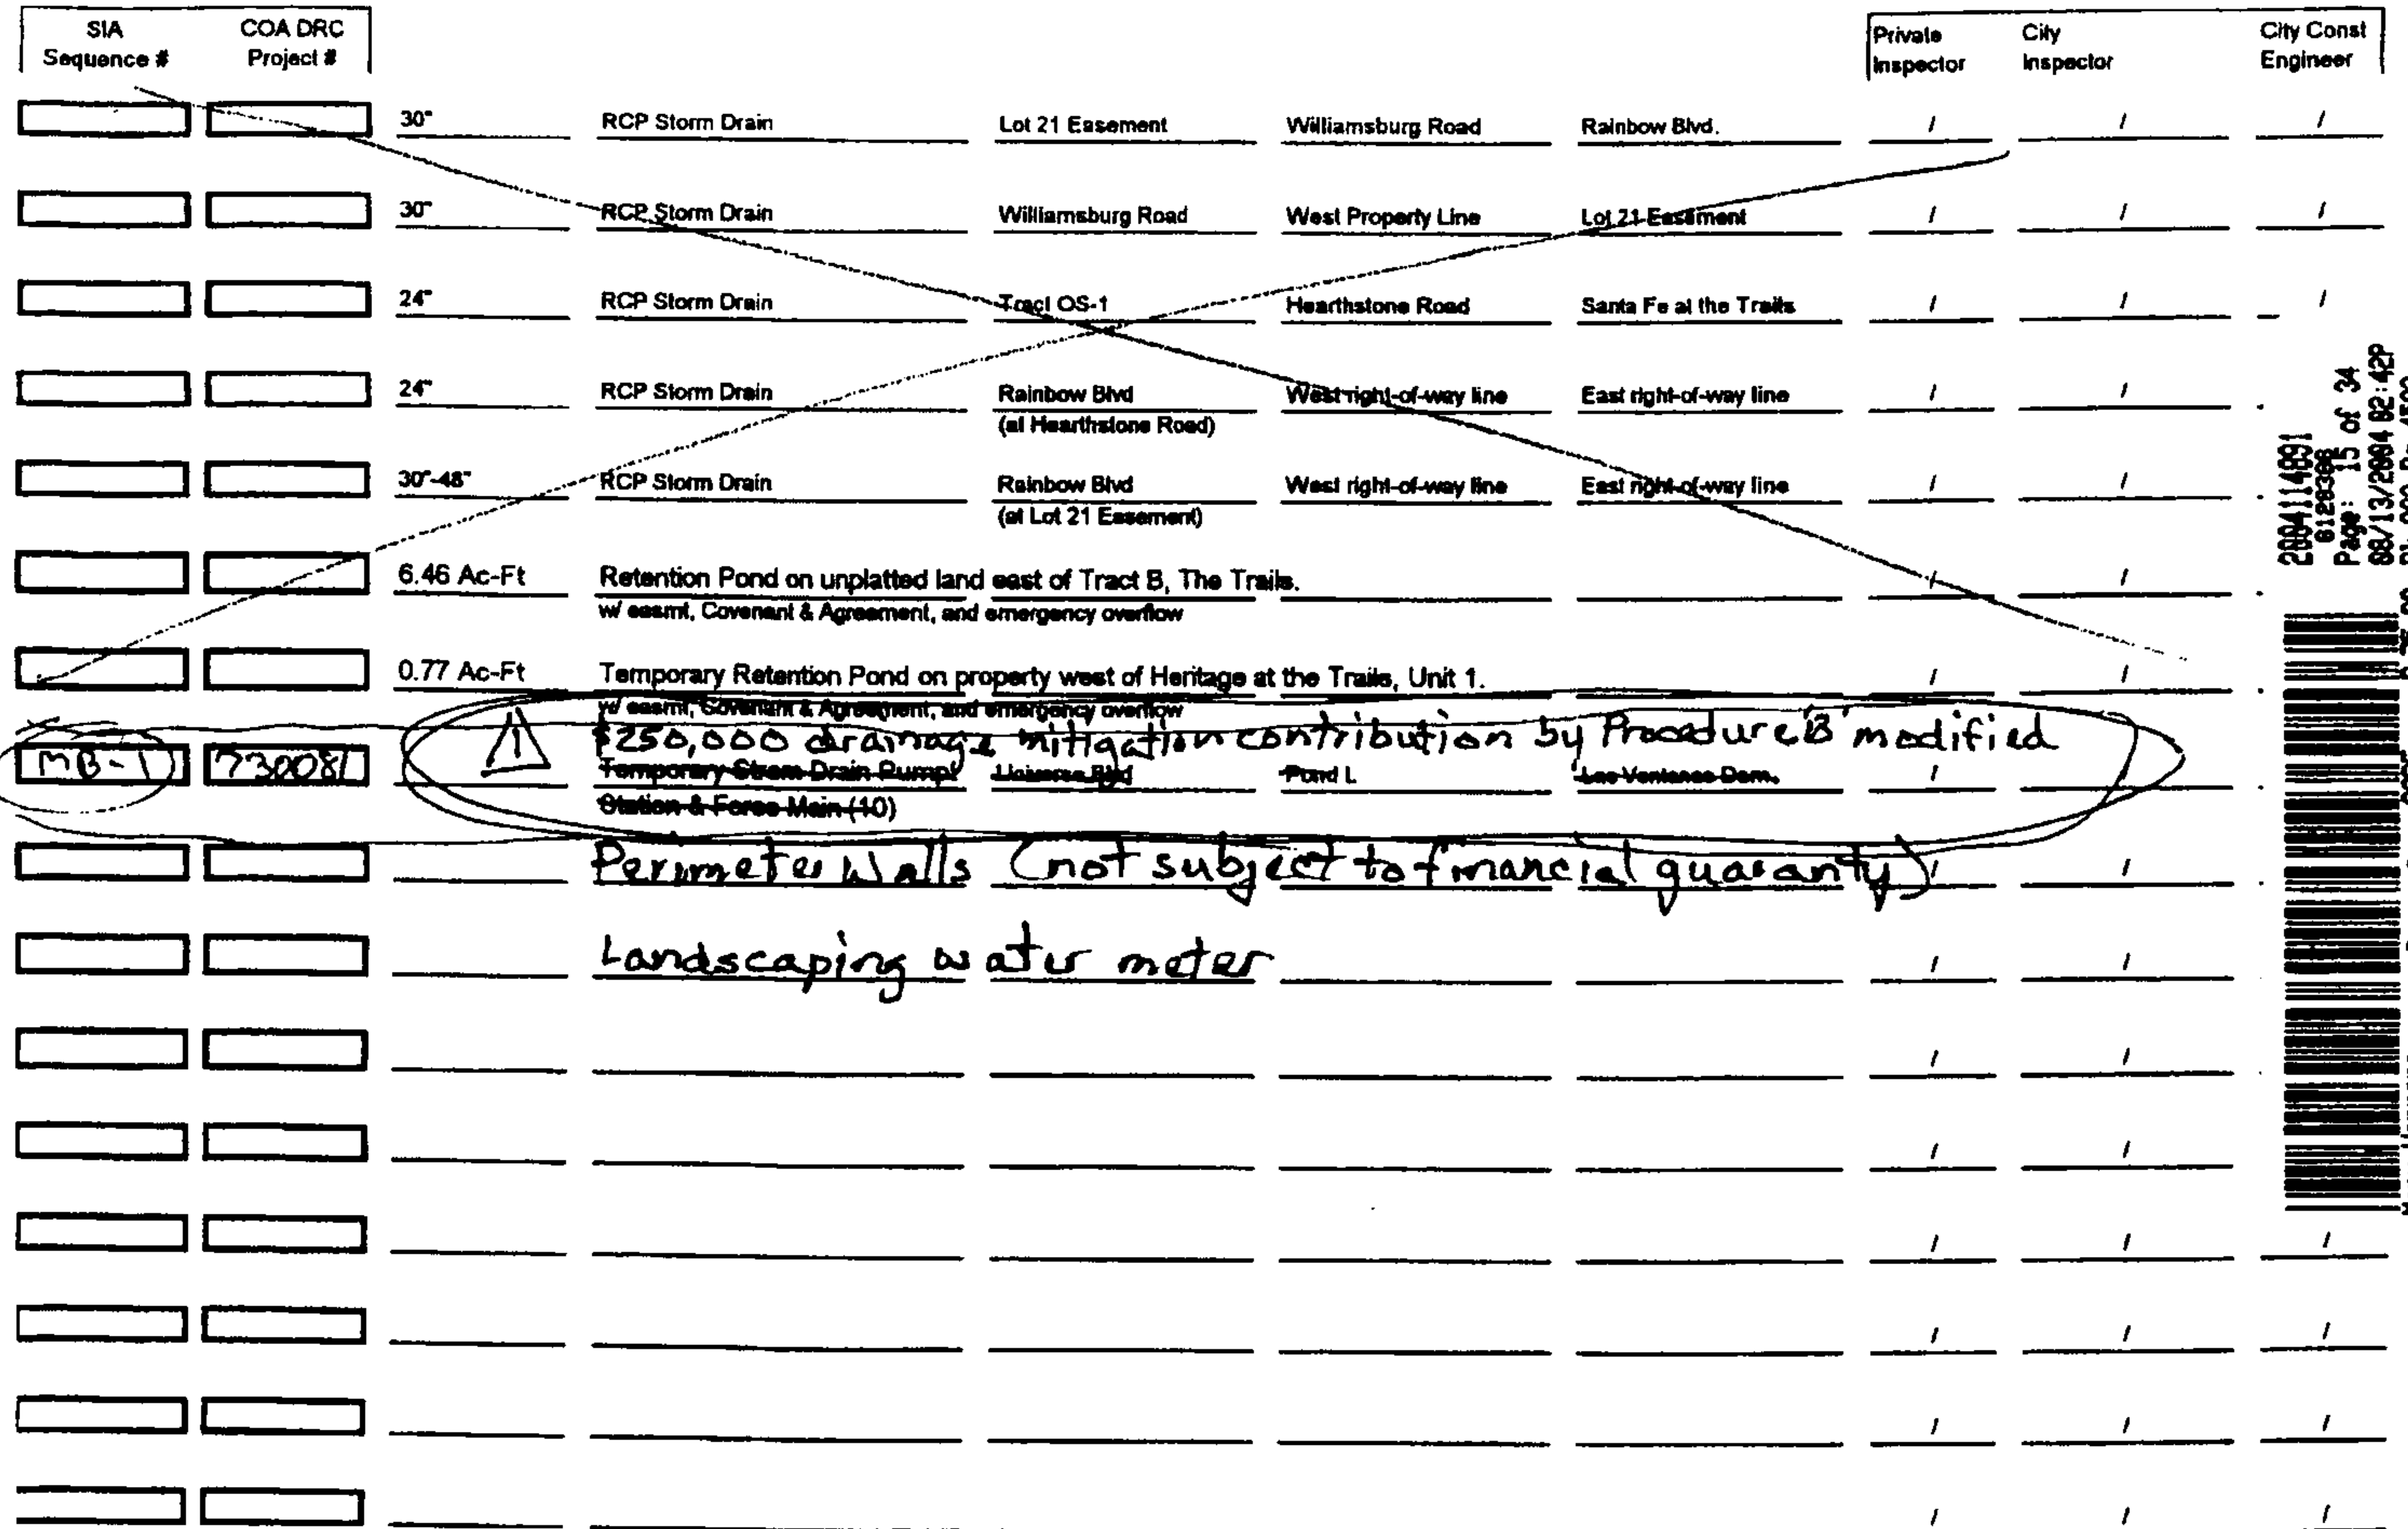 SIA COA DRC Private City City Const
Sequence # Project # Inspector Inspector Engineer
30" RCP Storm Drain Lot 21 Easement Williamsburg Road Rainbow Blvd. / / /
30" RCP Storm Drain Williamsburg Road West Property Line Lot 21 Easement / / /
24" RCP Storm Drain Tract OS-1 Hearthstone Road Santa Fe at the Trails / / /
24" RCP Storm Drain Rainbow Blvd West right-of-way line East right-of-way line / /
(at Hearthstone Road)
30"-48" RCP Storm Drain Rainbow Blvd West right-of-way line East right-of-way line / /
(at Lot 21 Easement)
6.46 Ac-Ft Retention Pond on unplatted land east of Tract B, The Trails. / /
w/ easmt, Covenant & Agreement, and emergency overflow
0.77 Ac-Ft Temporary Retention Pond on property west of Heritage at the Trails, Unit 1. / /
w/ easmt, Covenant & Agreement, and emergency overflow
1 $250,000 drainage mitigation contribution by Procedure 'B' modified
MB-1 730081 Temporary Strom Drain Pump Universe Blvd Pond L Las Ventanas Dam. / /
Station & Force Main (10)
Perimeter Walls (not subject to financial guaranty) / /
Landscaping water meter / /
/ /
/ /
/ / /
/ / /
/ / /
/ / /
2004114091
6128308
Page: 15 of 34
08/13/2004 02:42P